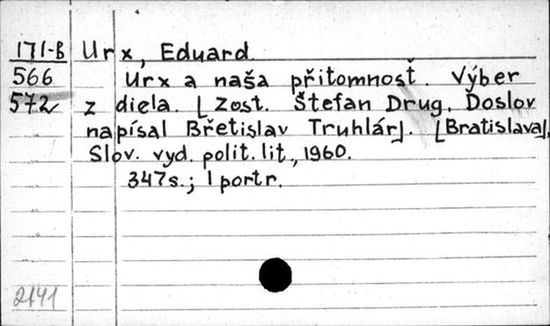 171-B Urx, Eduard
566 Urx a naša přítomnosť. Výber
572 z diela. [Zost. Štefan Drug. Doslov
napísal Břetislav Truhlár]. [Bratislava],
Slov. vyd. polit. lit., 1960.
347s.; 1 portr.
2141